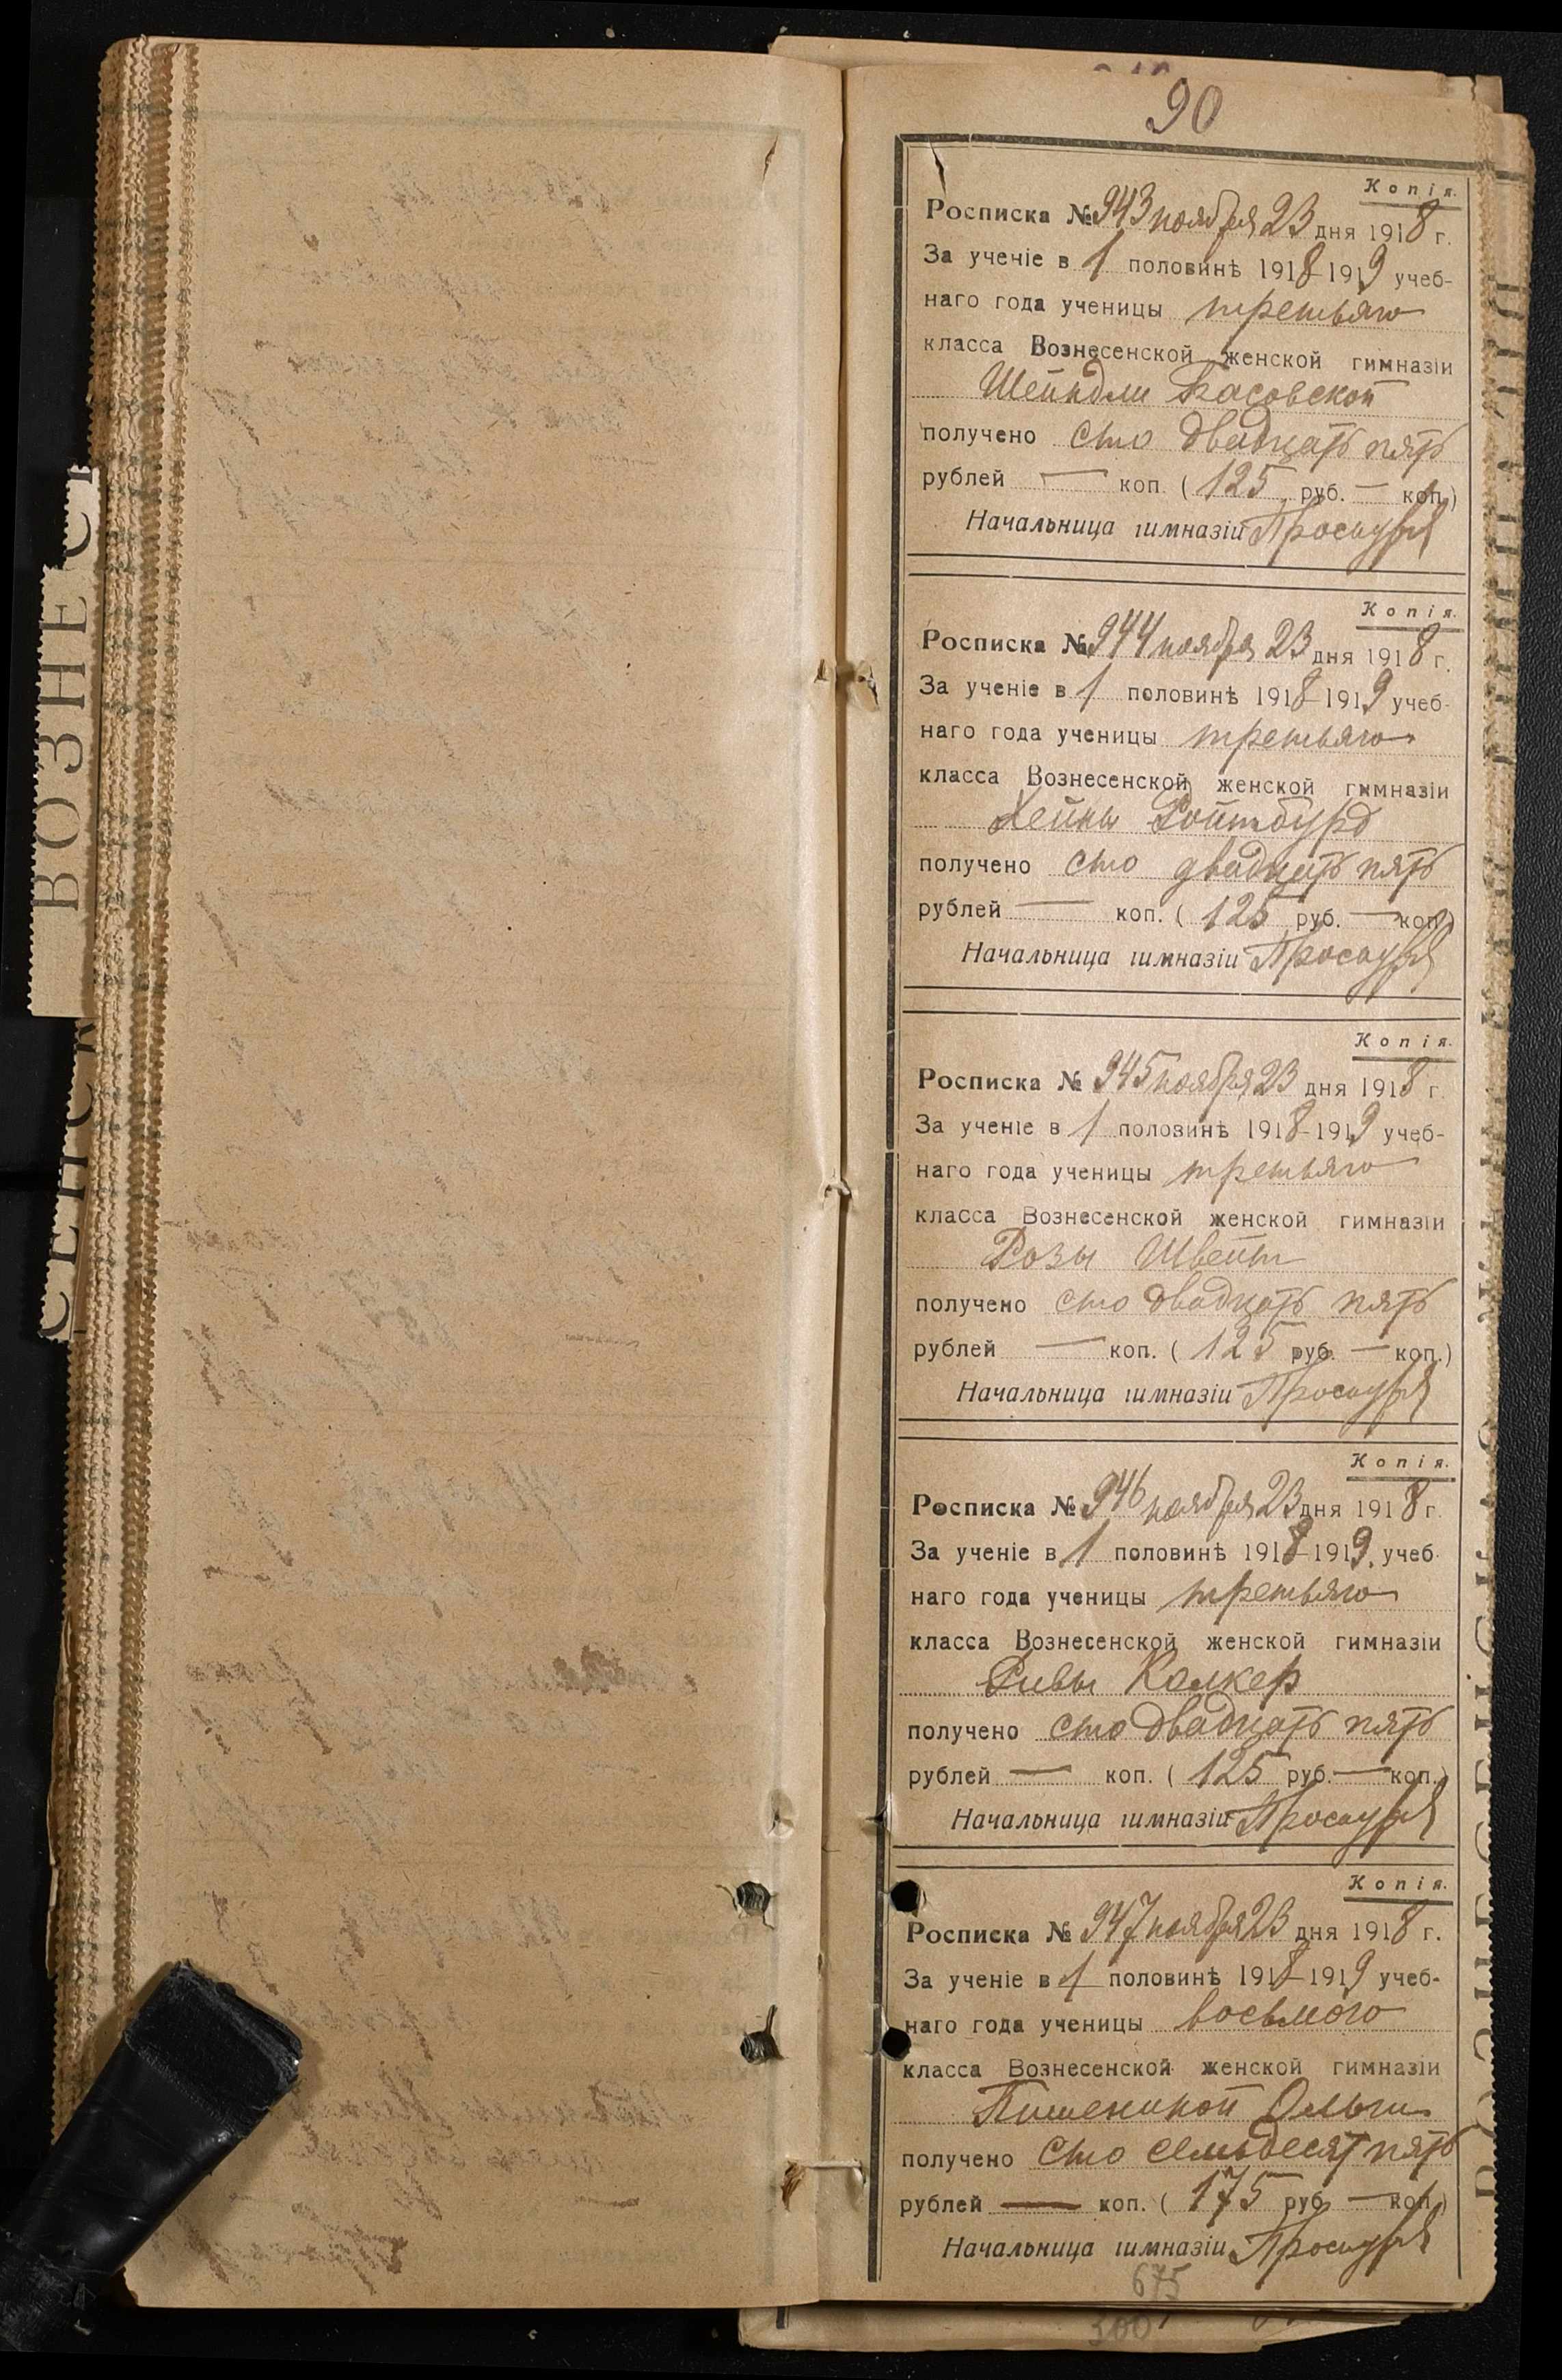 90
Копія.
Росписка № 943 ноября 23 дня 1918 г.
За ученіе в 1 половинѣ 1918-1919 учеб-
наго года ученицы третьяго
класса Вознесенской женской гимназіи
Шейндли Касовской
получено сто двадцать пять
рублей — коп. (125 руб. — коп.)
Начальница гимназіи
Копія.
Росписка № 944 ноября 23 дня 1918 г.
За ученіе в 1 половинѣ 1918-1919 учеб-
наго года ученицы третьяго
класса Вознесенской женской гимназіи
Хейны Ройтбурд
получено сто двадцать пять
рублей — коп. (125 руб. — коп.)
Начальница гимназіи
Копія.
Росписка № 945 ноября 23 дня 1918 г.
За ученіе в 1 половинѣ 1918-1919 учеб-
наго года ученицы третьяго
класса Вознесенской женской гимназіи
Розы Швейт
получено сто двадцать пять
рублей — коп. (125 руб. — коп.)
Начальница гимназіи
Копія.
Росписка № 946 ноября 23 дня 1918 г.
За ученіе в 1 половинѣ 1918-1919 учеб-
наго года ученицы третьяго
класса Вознесенской женской гимназіи
Ривы Калкер
получено сто двадцать пять
рублей — коп. (125 руб. — коп.)
Начальница гимназіи
Копія.
Росписка № 947 ноября 23 дня 1918 г.
За ученіе в 1 половинѣ 1918-1919 учеб-
наго года ученицы восьмого
класса Вознесенской женской гимназіи
Ольги
получено сто семьдесят пять
рублей — коп. (175 руб. — коп.)
Начальница гимназіи
675
300
ВОЗНЕС